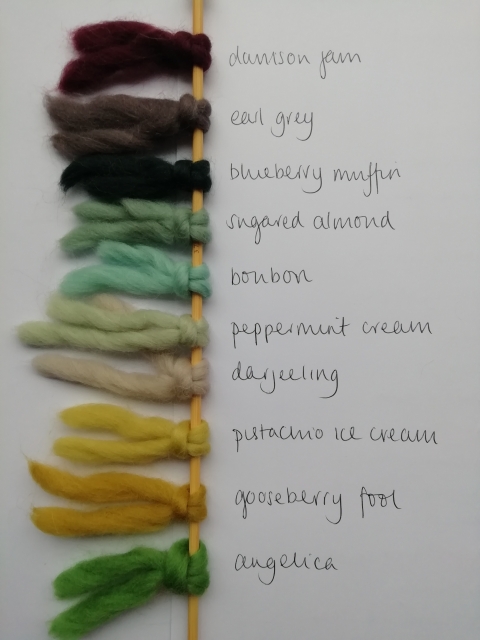 damson jam
earl grey
blueberry muffin
sugared almond
bonbon
peppermint cream
darjeeling
pistachio ice cream
gooseberry fool
angelica